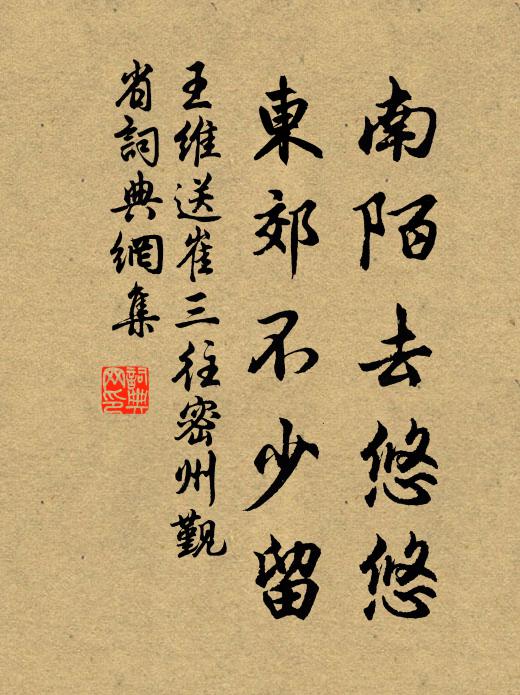 南陌去悠悠
東郊不少留
王維送崔三往密州觐
省詞典網集
詞典
网印